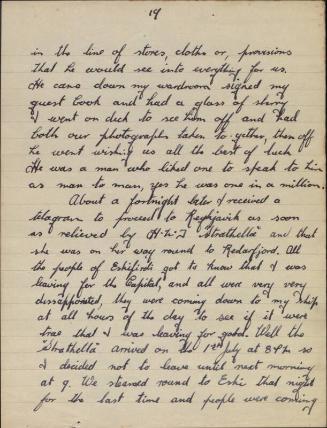 19
in the line of stores, cloths or, provisions
that he would see into everything for us.
He came down my wardroom signed my
guest book and had a glass of sherry
I went on deck to see him off and had
both our photographs taken to-gether, then off
he went wishing us all the best of luck
He was a man who liked one to speak to him
as man to man, yes he was one in a million.
About a fortnight later I received a
telegram to proceed to Reykjavik as soon
as relieved by H.M.T "Strathella" and that
she was on her way round to Redarfjord. All
the people of Eskifirdi got to know that I was
leaving for the Capital, and all were very very
dissappointed, they were coming down to my ship
at all hours of the day to see if it were
true that I was leaving for good. Well the
"Strathella" arrived on the 1st July at 8 P.M. so
I decided not to leave until next morning
at 9. We steamed round to Eski that night
for the last time and people were coming